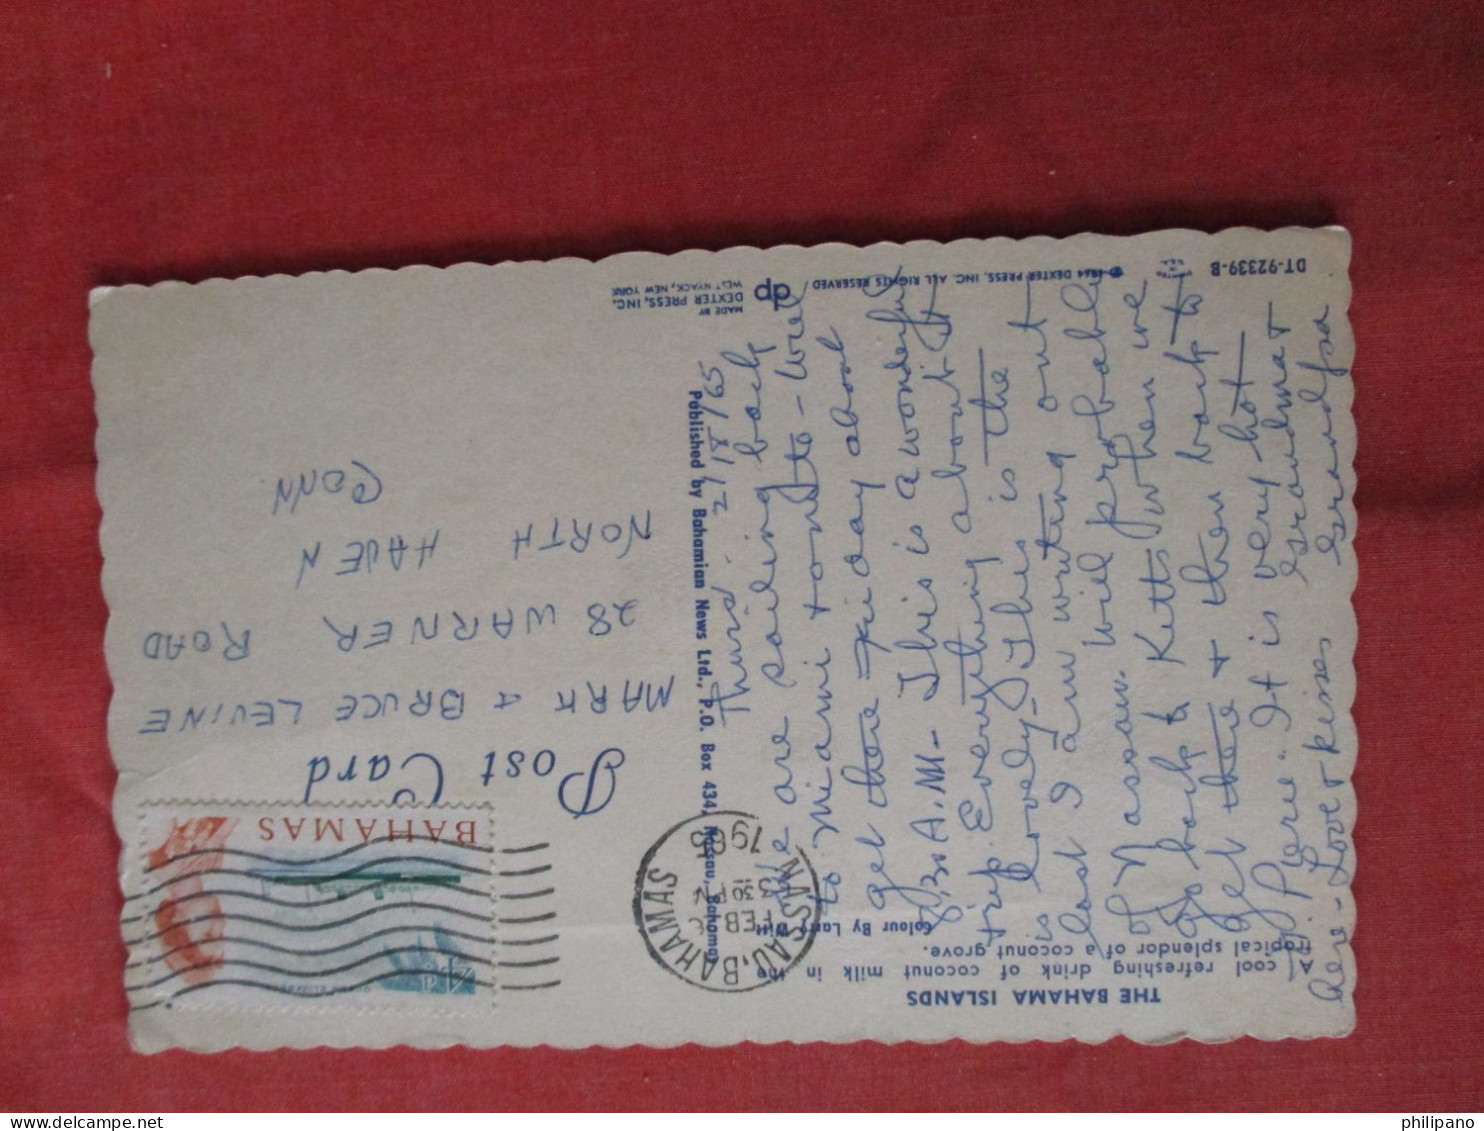 THE BAHAMA ISLANDS
A cool refreshing drink of coconut milk in the
tropical splendor of a coconut grove.
Colour By Larry Witt
Thurs. 2/18/65
We are sailing back
to Miami tonite - will
get there Friday about
8.30 A.M. - This is a wonderful
trip. Everything about it
is lovely - This is the
last I am writing out
of Nassau. will probably
go back to Ketts when we
get there & then back to
N. Y. It is very hot
here - Love & kisses
Grandma &
Grandpa
DT-92339-B
© 1964 DEXTER PRESS, INC. ALL RIGHTS RESERVED
dp
MADE BY
DEXTER PRESS, INC.
WEST NYACK, NEW YORK
Published by Bahamian News Ltd., P.O. Box 434, Nassau, Bahamas
Post Card
BAHAMAS
4d
NASSAU, BAHAMAS
FEB
3 30 PM
1965
MARK & BRUCE LEVINE
28 WARNER ROAD
NORTH HAVEN
CONN
philipano